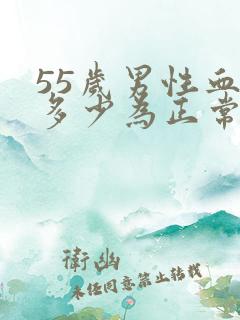 55歲男性血
多少為正常
衛幽
未经同意禁止转载